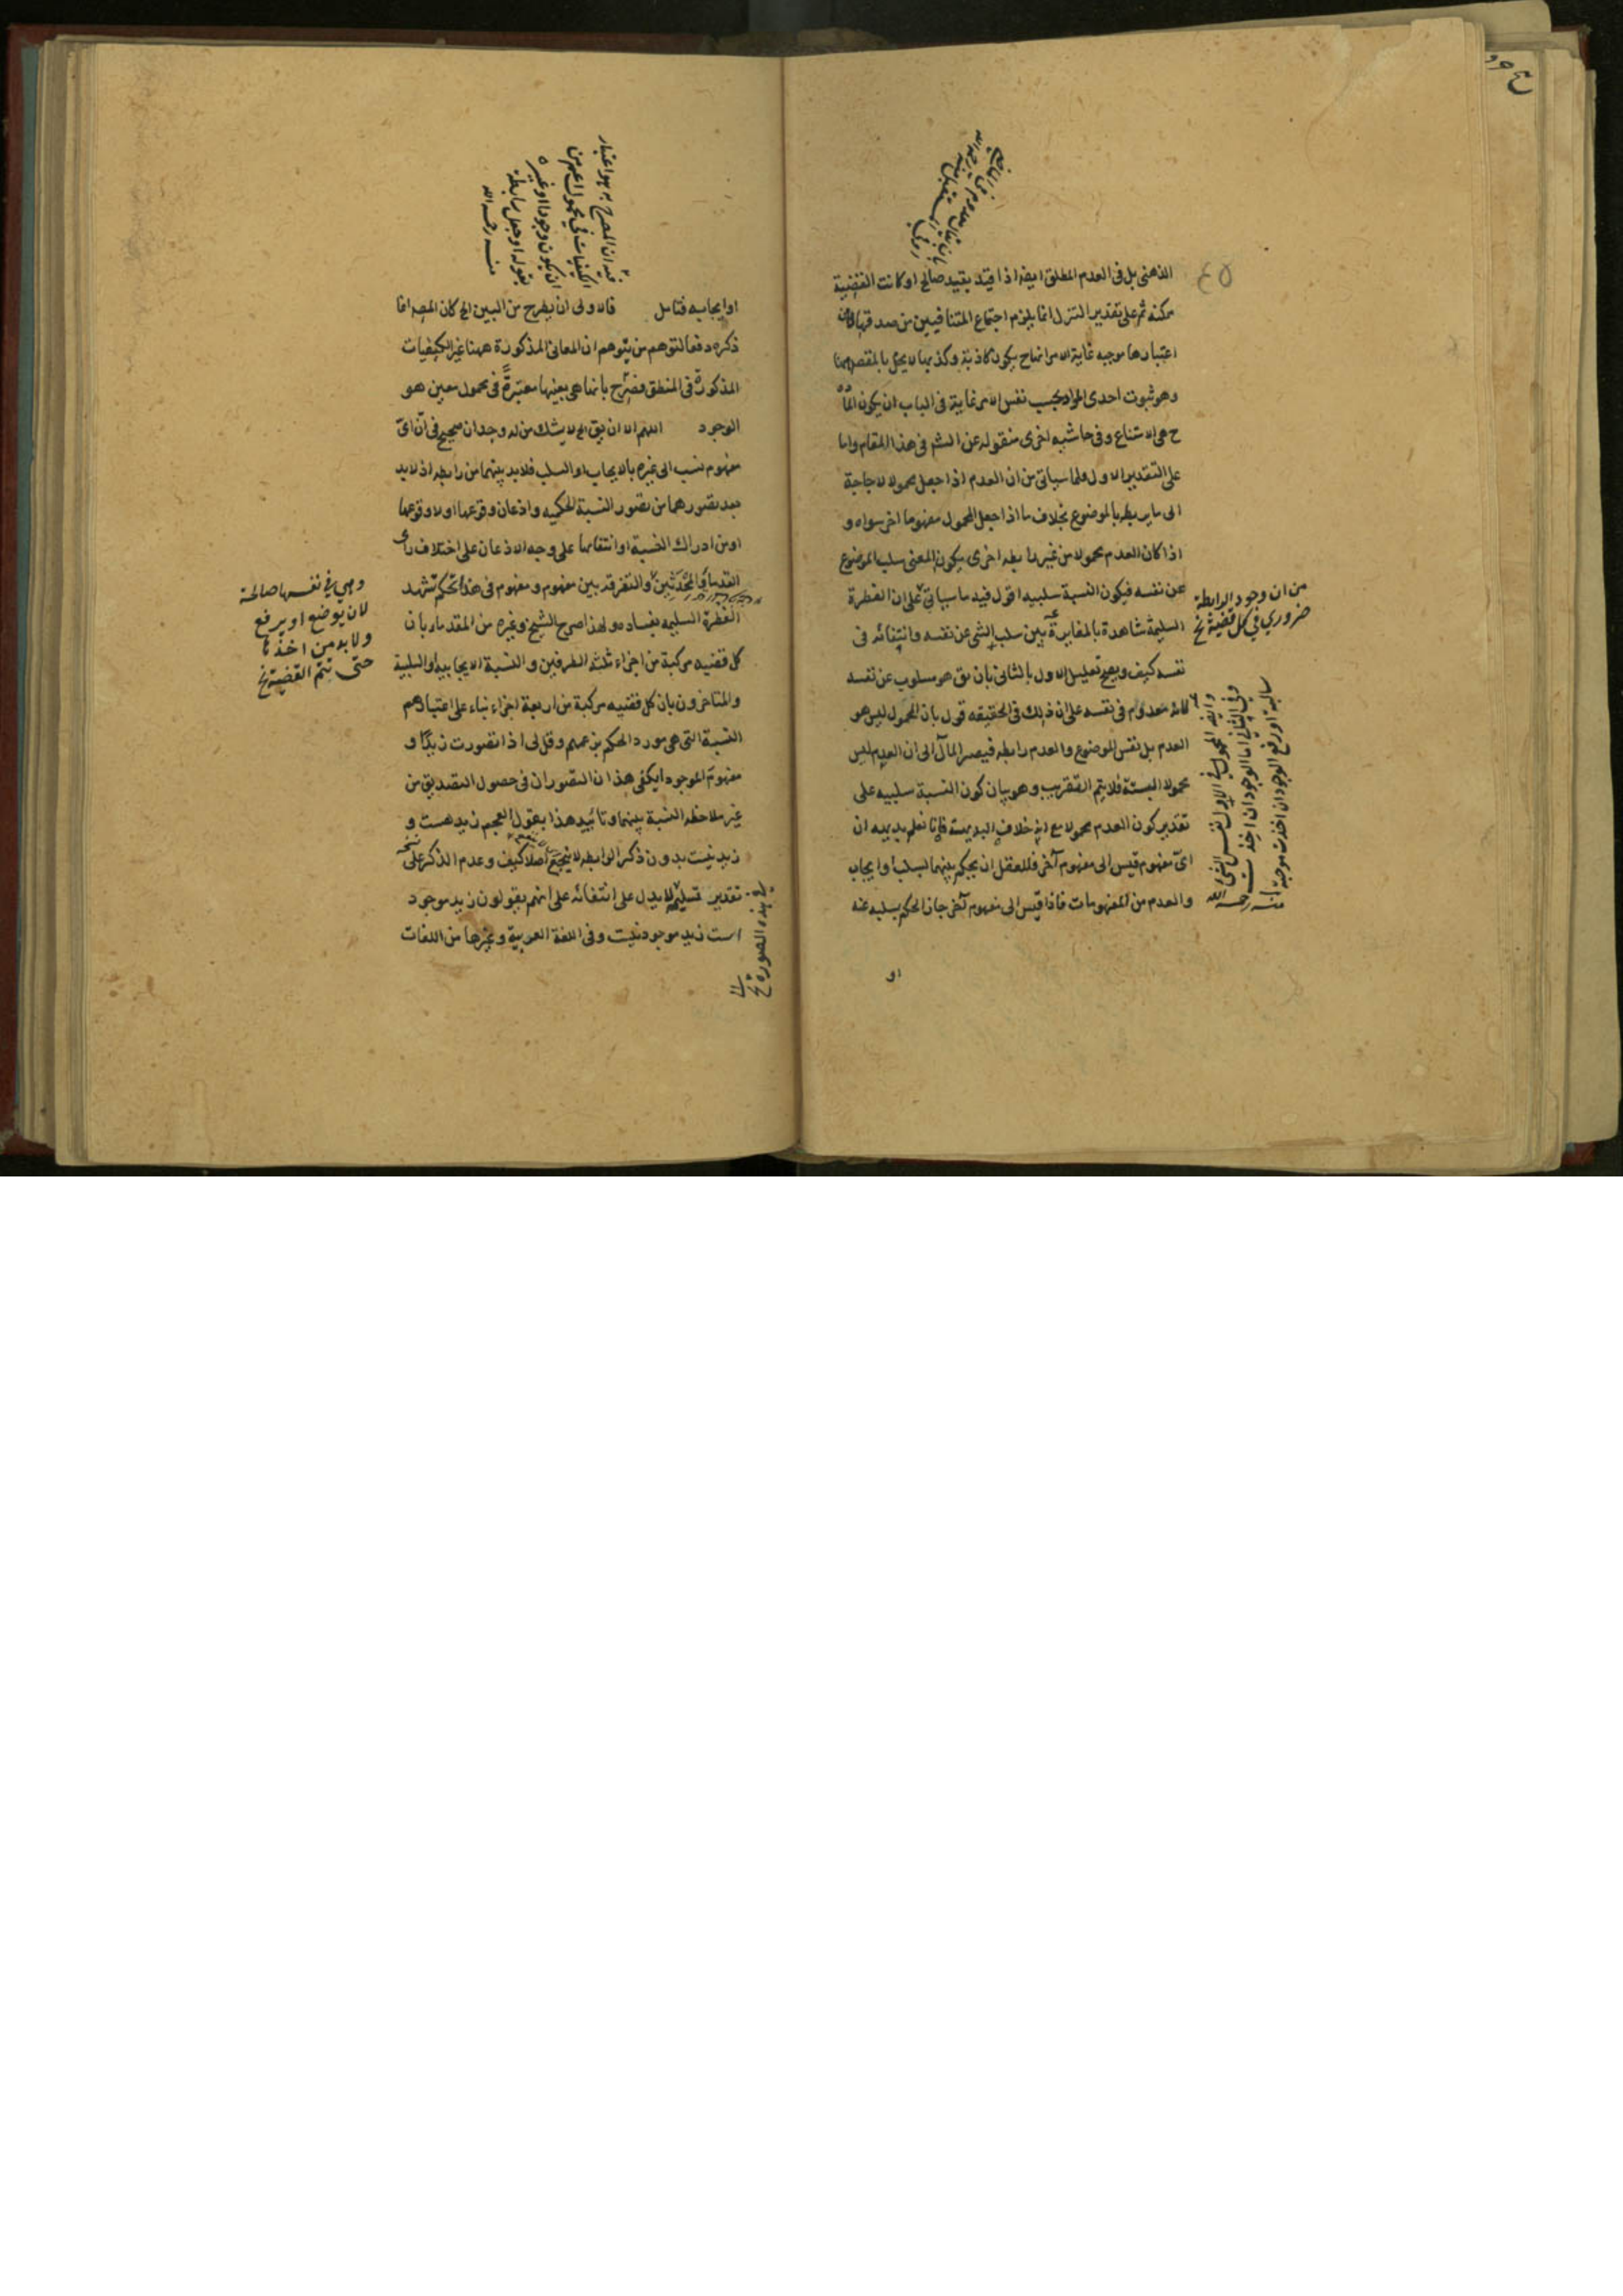 الذهنى بل فى العدم المطلق ايضا اذا قيد بقيد صالح او كانت القضية
ممكنة ثم على تقدير التنزل انما يلزم اجتماع المتنافيين من صدقها
اعتبارها موجبه غاية الامر انها ح يكون كاذبة وكذبها لا يخل بالمقصود
وهو ثبوت احدى المواد بحسب نفس الامر غاية فى الباب ان يكون
ح هى الامتناع وفى حاشيه اخرى منقوله عن الش فى هذا المقام واما
على التقدير الاول ولما سياتى من ان العدم اذا جعل محمولا لا حاجة
الى ما يربطه بالموضوع بخلاف ما اذا جعل المحمول مفهوما اخر سواه و
اذا كان العدم محمولا من غير رابطه اخرى يكون المعنى سلب الموضوع
عن نفسه فيكون النسبة سلبيه اقول فيه ما سياتى على ان الفطرة
السليمة شاهدة بالمغايرة بين سلب الشى عن نفسه وانتفائه فى
نفسه كيف ويصح تعليل الاول بالثانى بان يق هو مسلوب عن نفسه
لانه معدوم فى نفسه على ان ذلك فى الحقيقه قول بان المحمول ليس هو
العدم بل نفس الموضوع والعدم رابطه فيصير المآل الى ان العدم ليس
محمولا البتة فلا يتم التقريب وهو بيان كون النسبة سلبيه على
تقدير كون العدم محمولا مع انه خلاف البديهة فانا نعلم بديهه ان
اىّ مفهوم قيس الى مفهوم آخر فللعقل ان يحكم بينهما بسلب او ايجاب
والعدم من المفهومات فاذا قيس الى مفهوم آخر جاز الحكم بسلبه عنه
او
من ان وجود الرابطة
ضروري في كل قضية نخ
وايضا المحمول في الاول نفس الشئ
وفي الثاني اما الوجود ان اخذت
سالبة او رفع الوجود ان اخذت موجبة
منه رحمه الله
او ايجابه فتامل قالاولى ان يطرح من البين
ذكره دفعا لتوهم من يتوهم ان المعانى المذكورة ههنا غير الكيفيات
المذكورة فى المنطق فصرح بانها هى بعينها معتبرة فى محمول معين هو
الوجود اللهم الا ان يق لا يشك من له وجدان صحيح فى ان اىّ
مفهوم نسب الى غيره بالايجاب او السلب فلا بد بينهما من رابطه اذ لابد
بعد تصورهما من تصور النسبة الحكميه واذعان وقوعها او لا وقوعها
او من ادراك النسبة او انتفائها على وجه الاذعان على اختلاف راى
القدماء والمحدثين والتفرقه بين مفهوم ومفهوم فى هذا تحكم تشهد
الفطرة السليمه بفساده ولهذا صرح الشيخ وغيره من القدماء بان
كل قضيه مركبة من اجزاء ثلثه الطرفين والنسبة الايجابيه او السلبية
والمتاخرون بان كل قضيه مركبة من اربعة اجزاء بناء على اعتبارهم
النسبة التى هى مورد الحكم بزعمهم وقل لى اذا تصورت زيدًا و
مفهوم الموجود ايكفى هذان التصوران فى حصول التصديق من
غير ملاحظه النسبة بينهما وتاييد هذا بقول العجم زيد هست و
زيد نيست بدون ذكر الرابطه لا ينجع اصلا كيف وعدم الذكر على
تقدير تسليمه لا يدل على انتفائه على انهم يقولون زيد موجود
است زيد موجود نيست وفى اللغة العربية وغيرها من اللغات
فيه ان المصرح به هو اعتبار
الكيفيات في محمول اعم من
ان يكون وجودا او غيره
بقوله او جعل رابطة
منه رحمه الله
وهي في نفسها صالحة
لان يوضع او يرفع
ولا بد من اخذها
حتى تتم القضية نخ
في هذه الصورة نخ